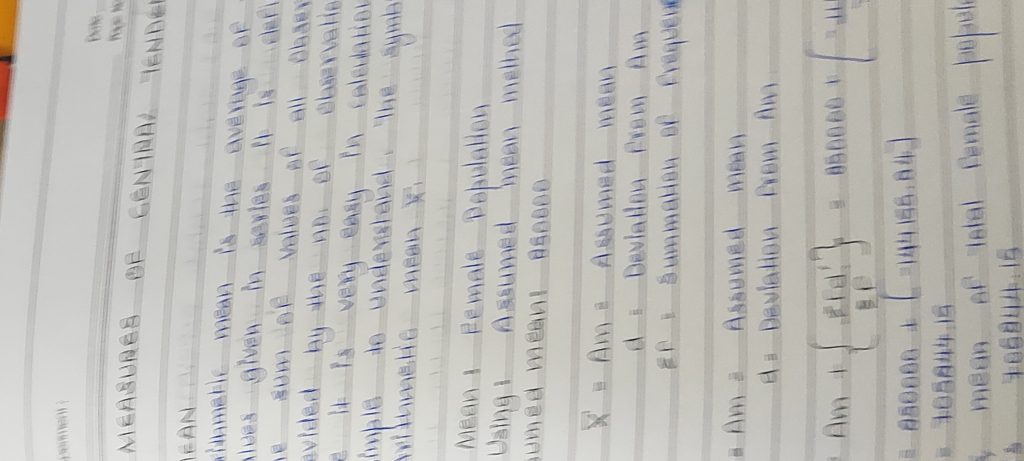 MEASURES OF CENTRAL TENDEN
EAN
ithmetic mean is the average of
lues given in series. It is defi
e sum of values of all obser
ivided by the no. of observatio
It is very easy in calculation
imple to understand. The symb
Arithmetic mean X̄.
Mean: Female Population
Using: Assumed mean method
sumed mean: 850000
X̄ = Am = Assumed mean
d = Deviation from Am
Σf = summation of frequen
= Am = Assumed mean
d = Deviation from Am
= Am + [Σfd'/Σf] = 850000 + [
= 850000 + [-144155.84]
= 705844.15
mean of total female popula
705844.15